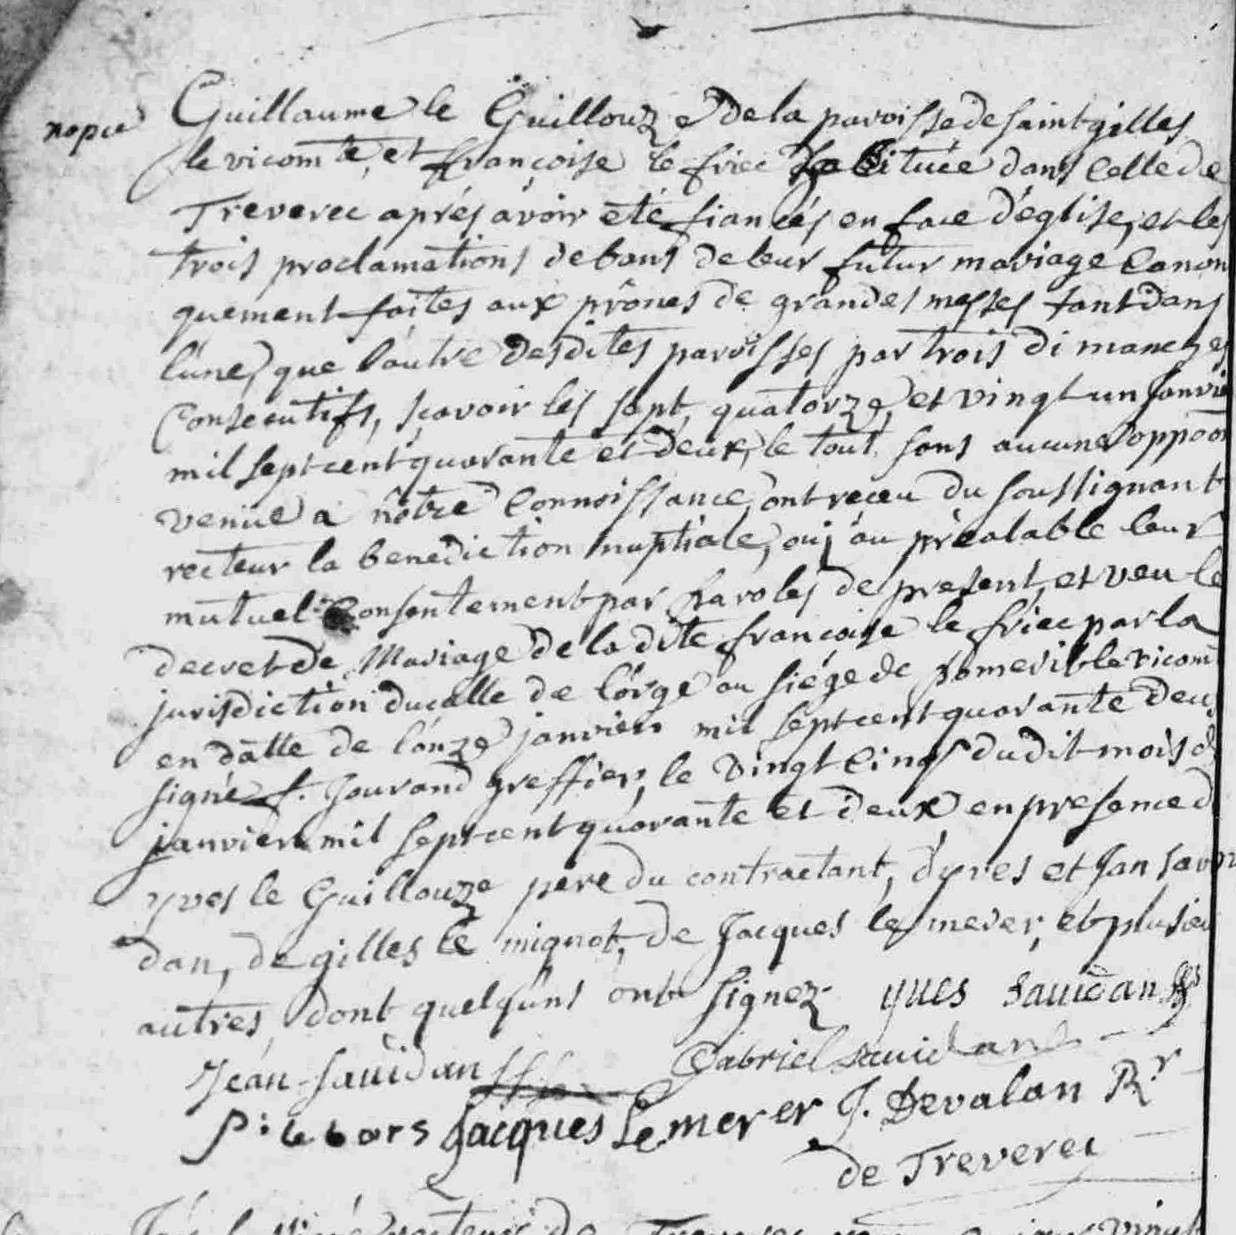 nopce
Guillaume le Guillouz e de la paroisse de saint gilles
le vicomte, et françoise le friec habituée dans celle de
Treverec aprés avoir eté fiancés en face d'eglise, et les
trois proclamations de bans de leur futur mariage Canon
quement faites aux prônes de grandes messes tant dans
l'une, que l'autre desdites paroisses par trois dimanches
Consecutifs, sçavoir les sept, quatorze, et vingt un janvie
mil sept cent quarante et deux, le tout sans aucune oppoon
venüe a nôtre Connoissance, ont receu du soussignant
recteur la benediction nuptiale, ouj au préalable leur
mutuel Consentement par paroles de present, et veu le
decret de Mariage de la dite françoise le friec par la
jurisdiction ducalle de lorge au siége de pomerit le vicom
en datte de l'onze janvier mil sept cent quarante deux
signé f. Jourand greffier, le vingt cinq dudit mois d
janvier mil sept cent quarante et deux en presence d
yves le Guillouze pere du contractant, d'yves et Jan savi
dan, de gilles le mignot, de Jacques le merer, et plusieu
autres, dont quelqu'uns ont signez yues sauidan
Jean sauidan Gabriel sauidan
P: le bars Jacques Le merer J. Devalan Rr
de Treverec